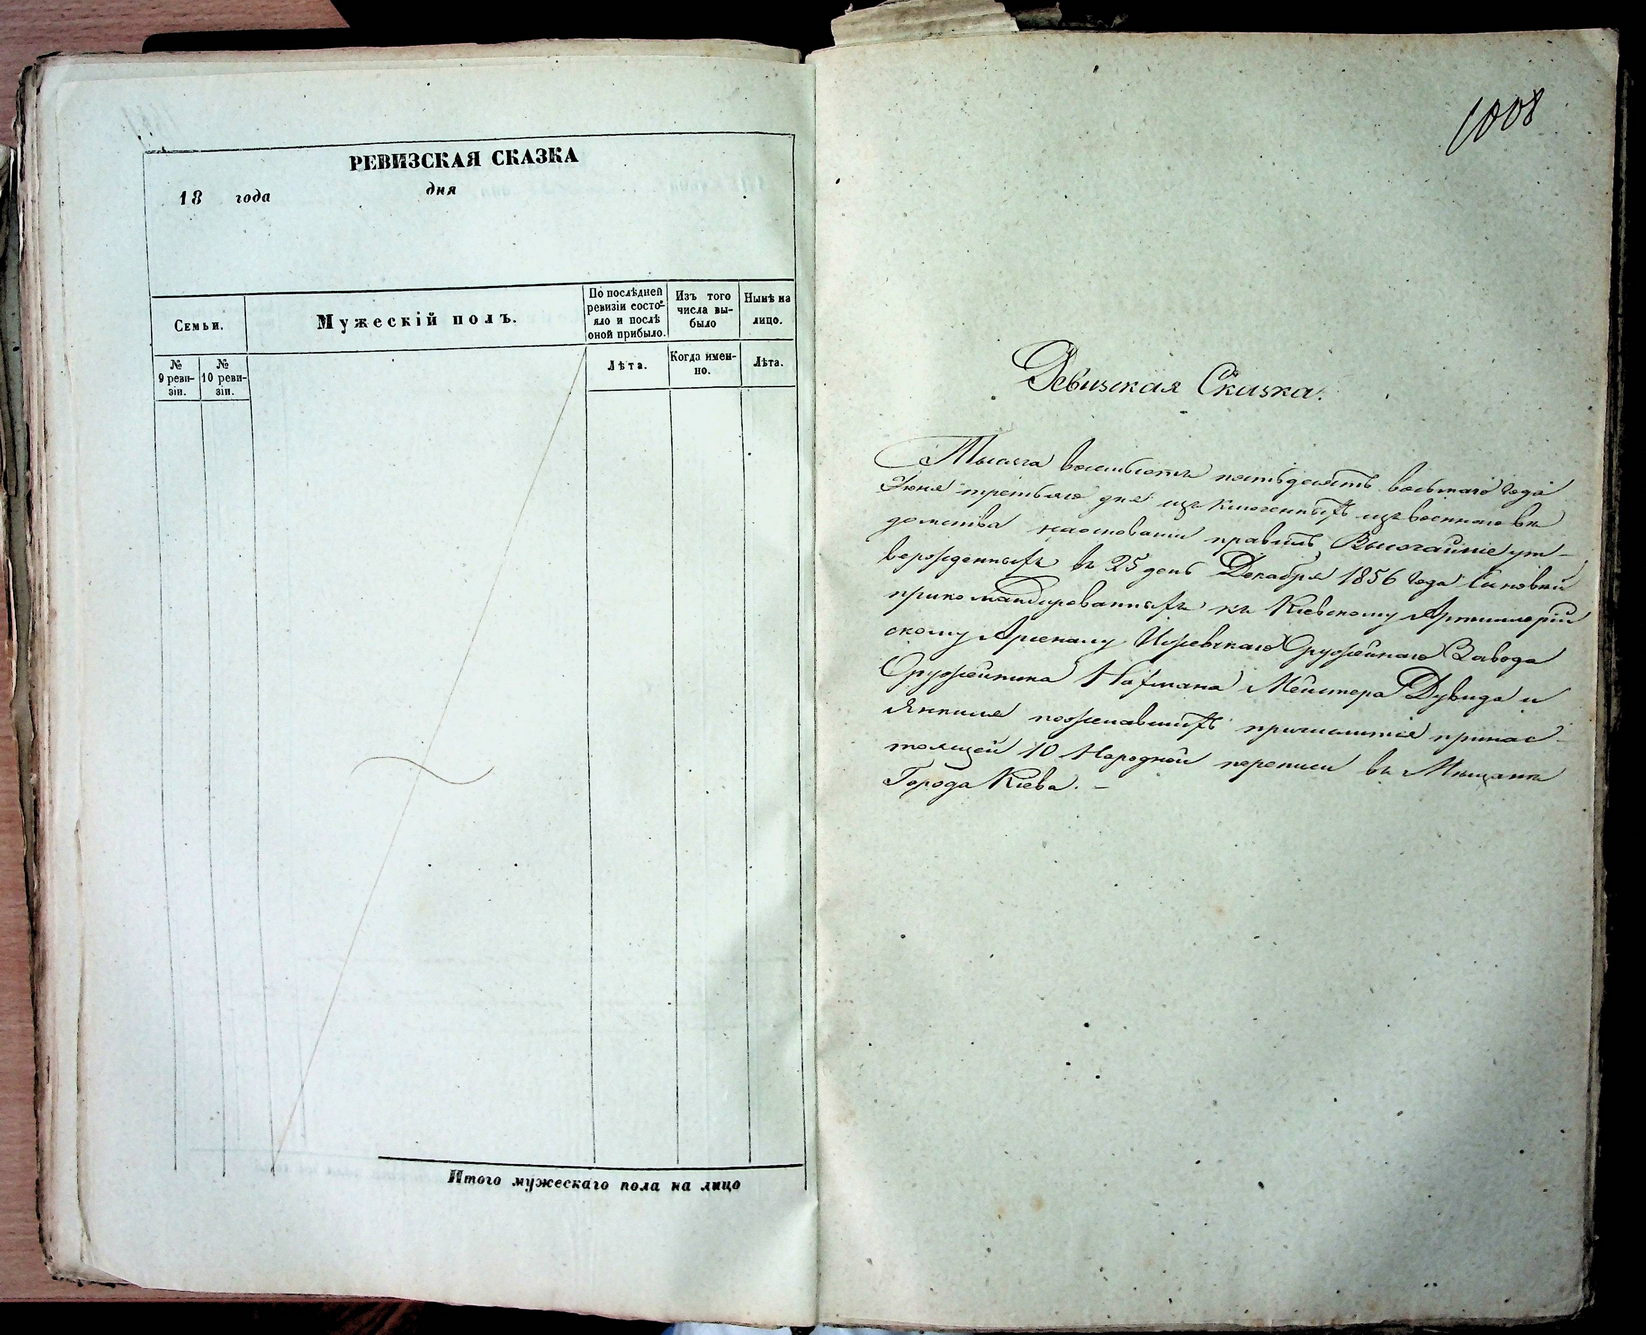 РЕВИЗСКАЯ СКАЗКА
18 года дня
Семьи.
Мужескій полъ.
По послѣдней
ревизіи состо-
яло и послѣ
оной прибыло.
Изъ того
числа вы-
было
Нынѣ на
лицо.
№
9 реви-
зіи.
№
10 реви-
зіи.
Лѣта.
Когда имен-
но.
Лѣта.
Итого мужескаго пола на лицо
1008
Ревизская Сказка.
Тысяча восемьсотъ пятьдесятъ восьмаго года
Іюня третьяго дня исключенныхъ изъ военнаго вѣ
домства на основаніи правилъ, Высочайше ут-
вержденныхъ въ 25 день Декабря 1856 года Сыновей
прикомандированныхъ къ Кіевскому Артиллерій
скому Арсеналу Ижевскаго Оружейнаго Завода
Оружейника Нахмана Мейстера Дувида и
Янкеля пожелавшихъ причислится при нас-
тоящей 10 Народной переписи въ Мѣщане
Города Кіева. -